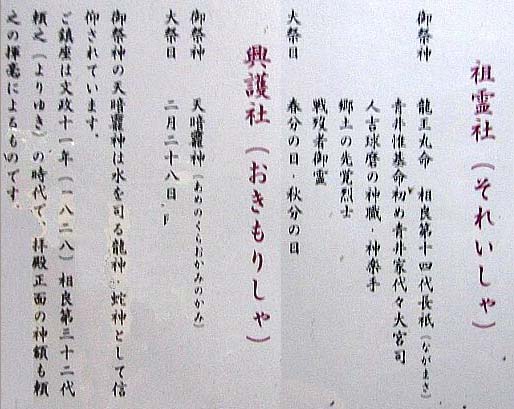 祖霊社(それいしゃ)
御祭神 龍王丸命 相良第十四代長祇(ながまさ)
青井惟基命初め青井家代々大宮司
人吉球磨の神職・神楽手
郷土の先覚烈士
戦歿者御霊
大祭日 春分の日・秋分の日
興護社(おきもりしゃ)
御祭神 天暗龗神(あめのくらおかみのかみ)
大祭日 二月二十八日
御祭神の天暗龗神は水を司る龍神・蛇神として信
仰されています。
ご鎮座は文政十一年(一八二八)相良第三十二代
頼之(よりゆき)の時代で、拝殿正面の神額も頼
之の揮毫によるものです。